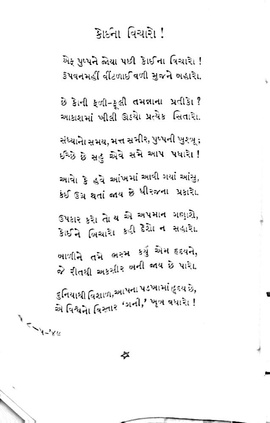 કોઈના વિચારો !
એક પુષ્પને જોયા પછી કોઈના વિચારો !
ઉપવનમહીં વીંટળાઈ વળી મુજને બહારો.
છે કોની ફળી-ફૂલી તમન્નાના પ્રતીકો ?
આકાશમાં ખીલી ઊઠયો પ્રત્યેક સિતારો.
સંધ્યાનો સમય, મત્ત સમીર, પુષ્પની ખુશ્બૂ;
ઈચ્છે છે સહુ એવે સમે આપ પધારો !
આવો કે હવે આંખમાં આવી ગયાં આંસુ,
કંઈ ઉગ્ર થતાં જાય છે ધીરજના પ્રકારો.
ઉપકાર કરો તોય એ અપમાન ગણાશે,
કોઈને બિચારા કહી દેશો ન સહારો.
બાળીને તમે ભસ્મ કર્યું એમ હૃદયને,
જે રીતથી અકસીર બની જાય છે પારો.
દુનિયાથી વિશાળ, આપના પડખામાં હૃદય છે,
એ વિશ્વનો વિસ્તાર ‘ગની’, ખૂબ વધારો !